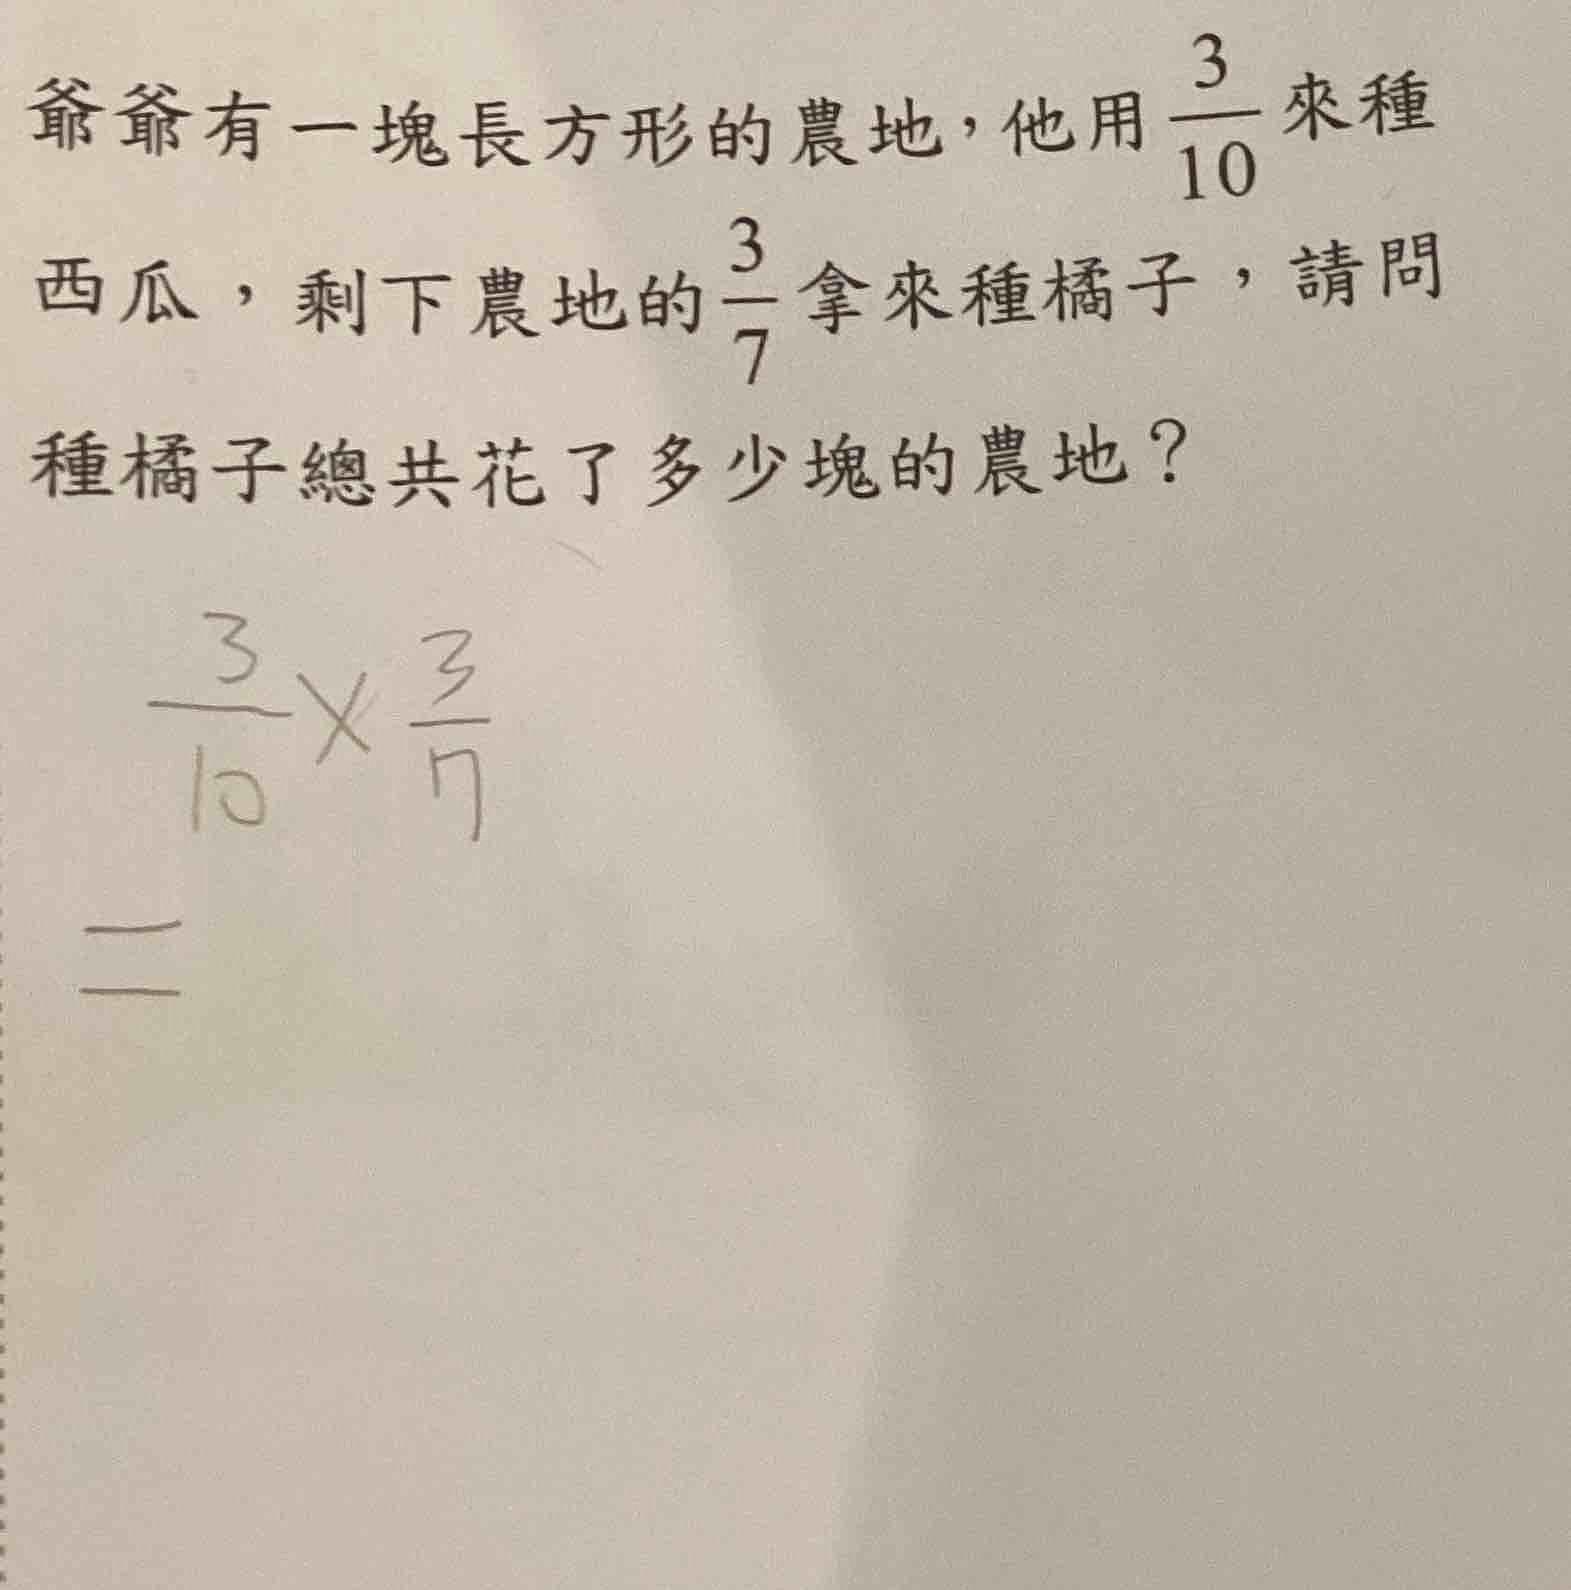 爺爺有一塊長方形的農地，他用3/10來種
西瓜，剩下農地的3/7拿來種橘子，請問
種橘子總共花了多少塊的農地？
3/10×3/7
=